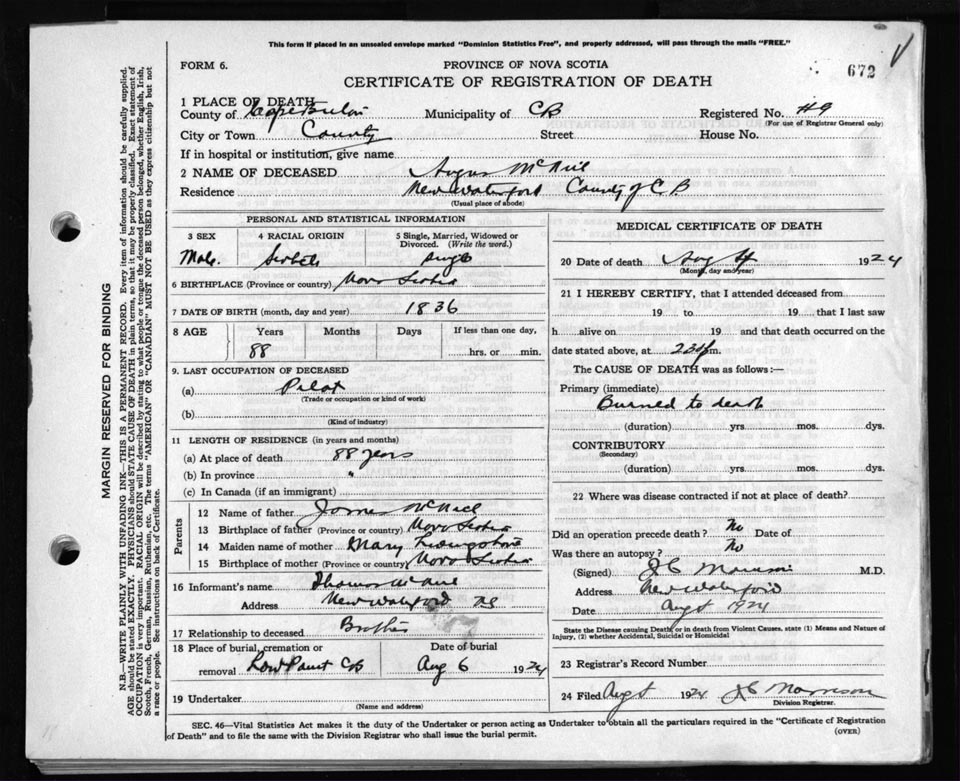 This form if placed in an unsealed envelope marked "Dominion Statistics Free", and properly addressed, will pass through the mails "FREE."
FORM 6.
PROVINCE OF NOVA SCOTIA
672
CERTIFICATE OF REGISTRATION OF DEATH
1 PLACE OF DEATH
County of Cape Breton Municipality of CB Registered No. 49
(For use of Registrar General only)
City or Town County Street House No.
If in hospital or institution, give name
2 NAME OF DECEASED Angus McNeil
Residence New Waterford County of C B
(Usual place of abode)
PERSONAL AND STATISTICAL INFORMATION
3 SEX 4 RACIAL ORIGIN 5 Single, Married, Widowed or Divorced. (Write the word.)
Male. Scotch Single
6 BIRTHPLACE (Province or country) Nova Scotia
7 DATE OF BIRTH (month, day and year) 1836
8 AGE Years Months Days If less than one day,
88 hrs. or min.
9. LAST OCCUPATION OF DECEASED
(a) Pilot
(Trade or occupation or kind of work)
(b)
(Kind of industry)
11 LENGTH OF RESIDENCE (in years and months)
(a) At place of death 88 years
(b) In province "
(c) In Canada (if an immigrant)
Parents
12 Name of father James McNeil
13 Birthplace of father (Province or country) Nova Scotia
14 Maiden name of mother Mary Livingstone
15 Birthplace of mother (Province or country) Nova Scotia
16 Informant's name Thomas McNeil
Address New Waterford NS
17 Relationship to deceased Brother
18 Place of burial, cremation or removal Low Point CB Date of burial Aug 6 1924
19 Undertaker
(Name and address)
MEDICAL CERTIFICATE OF DEATH
20 Date of death Aug 4 1924
(Month, day and year)
21 I HEREBY CERTIFY, that I attended deceased from
19 to 19 that I last saw
h alive on 19 and that death occurred on the
date stated above, at m.
The CAUSE OF DEATH was as follows:—
Primary (immediate)
Burned to death
(duration) yrs. mos. dys.
CONTRIBUTORY
(Secondary)
(duration) yrs. mos. dys.
22 Where was disease contracted if not at place of death?
Did an operation precede death? No Date of
Was there an autopsy? No
(Signed) J C Morrison M.D.
Address New Waterford
Date 1924
State the Disease causing Death, or in death from Violent Causes, state (1) Means and Nature of
Injury, (2) whether Accidental, Suicidal or Homicidal
23 Registrar's Record Number
24 Filed 1924 J C Morrison
Division Registrar.
SEC. 46—Vital Statistics Act makes it the duty of the Undertaker or person acting as Undertaker to obtain all the particulars required in the "Certificate of Registration
of Death" and to file the same with the Division Registrar who shall issue the burial permit.
(OVER)
MARGIN RESERVED FOR BINDING
N.B.—WRITE PLAINLY WITH UNFADING INK—THIS IS A PERMANENT RECORD. Every item of information should be carefully supplied.
AGE should be stated EXACTLY. PHYSICIANS should STATE CAUSE OF DEATH in plain terms, so that it may be properly classified. Exact statement of
OCCUPATION is very important. RACIAL ORIGIN will be described by stating to what people or tongue the deceased person belonged, whether English, Irish,
Scotch, French, German, Russian, Ruthenian, etc. The terms "AMERICAN" OR "CANADIAN" MUST NOT BE USED as they express citizenship but not
a race or people. See instructions on back of Certificate.